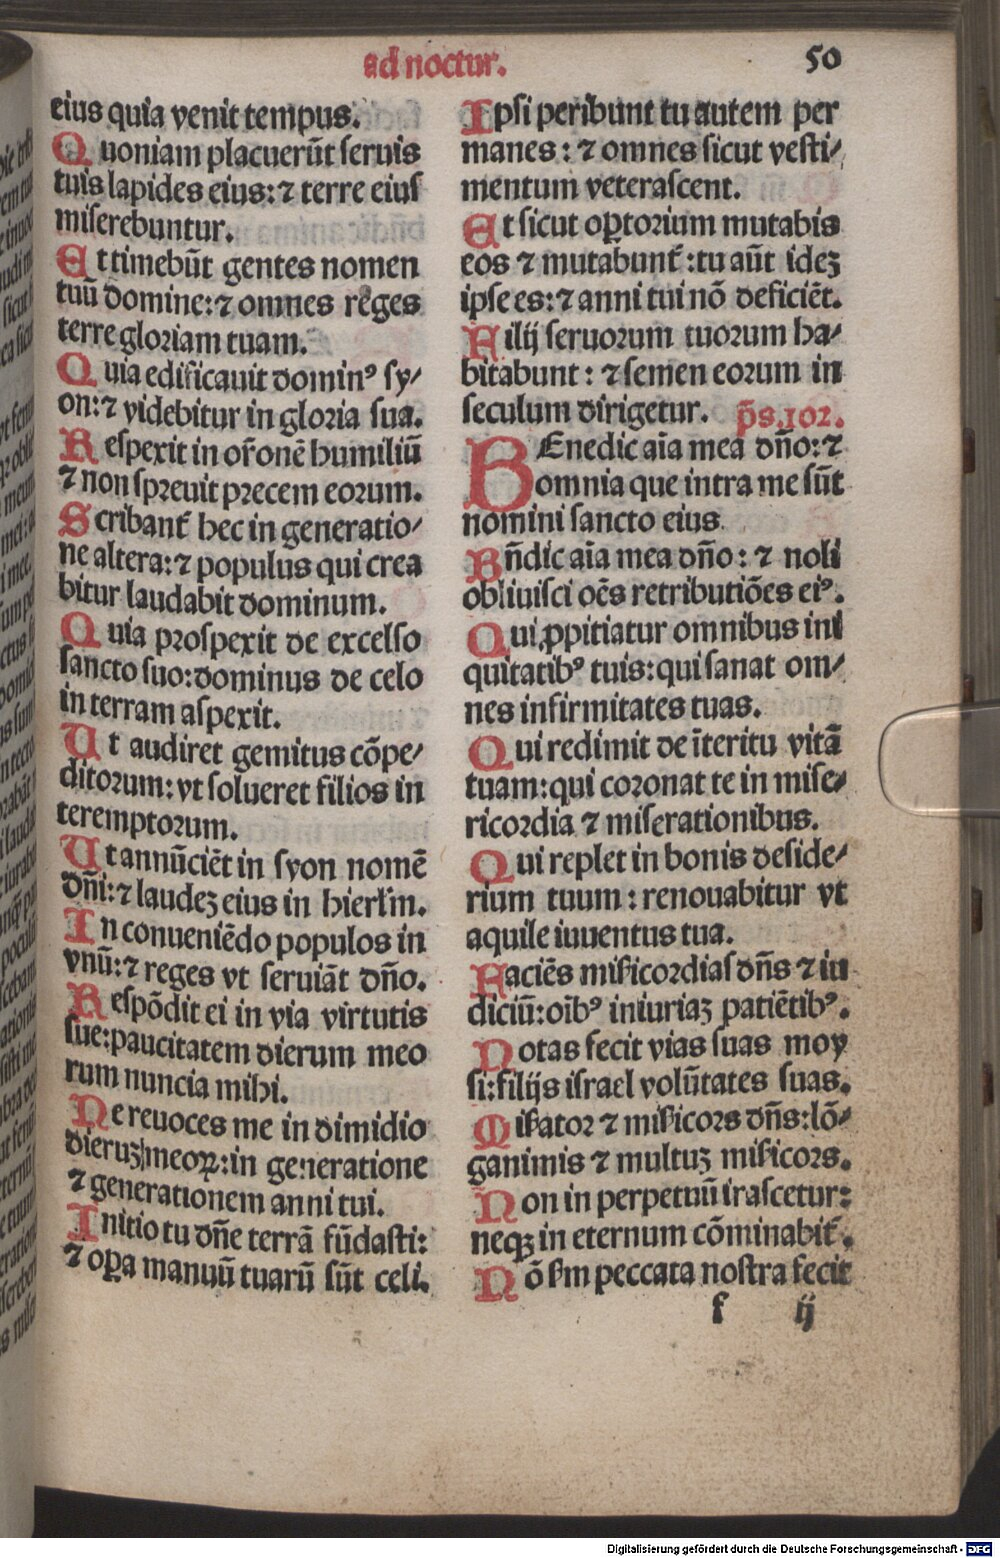 ad noctur.
50
eius quia venit tempus.
Quoniam placuerūt seruis
tuis lapides eius: ⁊ terre eius
miserebuntur.
Et timebūt gentes nomen
tuū domine: ⁊ omnes reges
terre gloriam tuam.
Quia edificauit dominꝰ sy/
on: ⁊ videbitur in gloria sua.
Respexit in or̄onē humiliū
⁊ non spreuit precem eorum.
Scribant̄ hec in generatio/
ne altera: ⁊ populus qui crea
bitur laudabit dominum.
Quia prospexit de excelso
sancto suo: dominus de celo
in terram aspexit.
Ut audiret gemitus cōpe/
ditorum: vt solueret filios in
teremptorum.
Ut annūciēt in syon nomē
dn̄i: ⁊ laudeꝫ eius in hierl̄m.
In conueniēdo populos in
vnū: ⁊ reges vt seruiāt dn̄o.
Respōdit ei in via virtutis
sue: paucitatem dierum meo
rum nuncia mihi.
Ne reuoces me in dimidio
dieruꝫ meoꝝ: in generatione
⁊ generationem anni tui.
Initio tu dn̄e terrā fūdasti:
⁊ oꝑa manuū tuarū sūt celi.
Ipsi peribunt tu autem per
manes: ⁊ omnes sicut vesti/
mentum veterascent.
Et sicut oꝑtorium mutabis
eos ⁊ mutabunt̄: tu aūt ideꝫ
ipse es: ⁊ anni tui nō deficiēt.
Filij seruorum tuorum ha/
bitabunt: ⁊ semen eorum in
seculum dirigetur. p̄s. 102.
BEnedic aīa mea dn̄o: ⁊
omnia que intra me sūt
nomini sancto eius
Bn̄dic aīa mea dn̄o: ⁊ noli
obliuisci oēs retributiōes eiꝰ.
Qui ꝓpitiatur omnibus ini
quitatibꝰ tuis: qui sanat om/
nes infirmitates tuas.
Qui redimit de īteritu vitā
tuam: qui coronat te in mise/
ricordia ⁊ miserationibus.
Qui replet in bonis deside/
rium tuum: renouabitur vt
aquile iuuentus tua.
Faciēs mīicordias dn̄s ⁊ iu
diciū: oībꝰ iniuriaꝫ patiētibꝰ.
Notas fecit vias suas moy
si: filijs israel volūtates suas.
Miẜator ⁊ miẜicors dn̄s: lō/
ganimis ⁊ multuꝫ miẜicors.
Non in perpetuū irascetur:
neqꝫ in eternum cōminabit̄.
Nō ẜm peccata nostra fecit
f ij
Digitalisierung gefördert durch die Deutsche Forschungsgemeinschaft - DFG